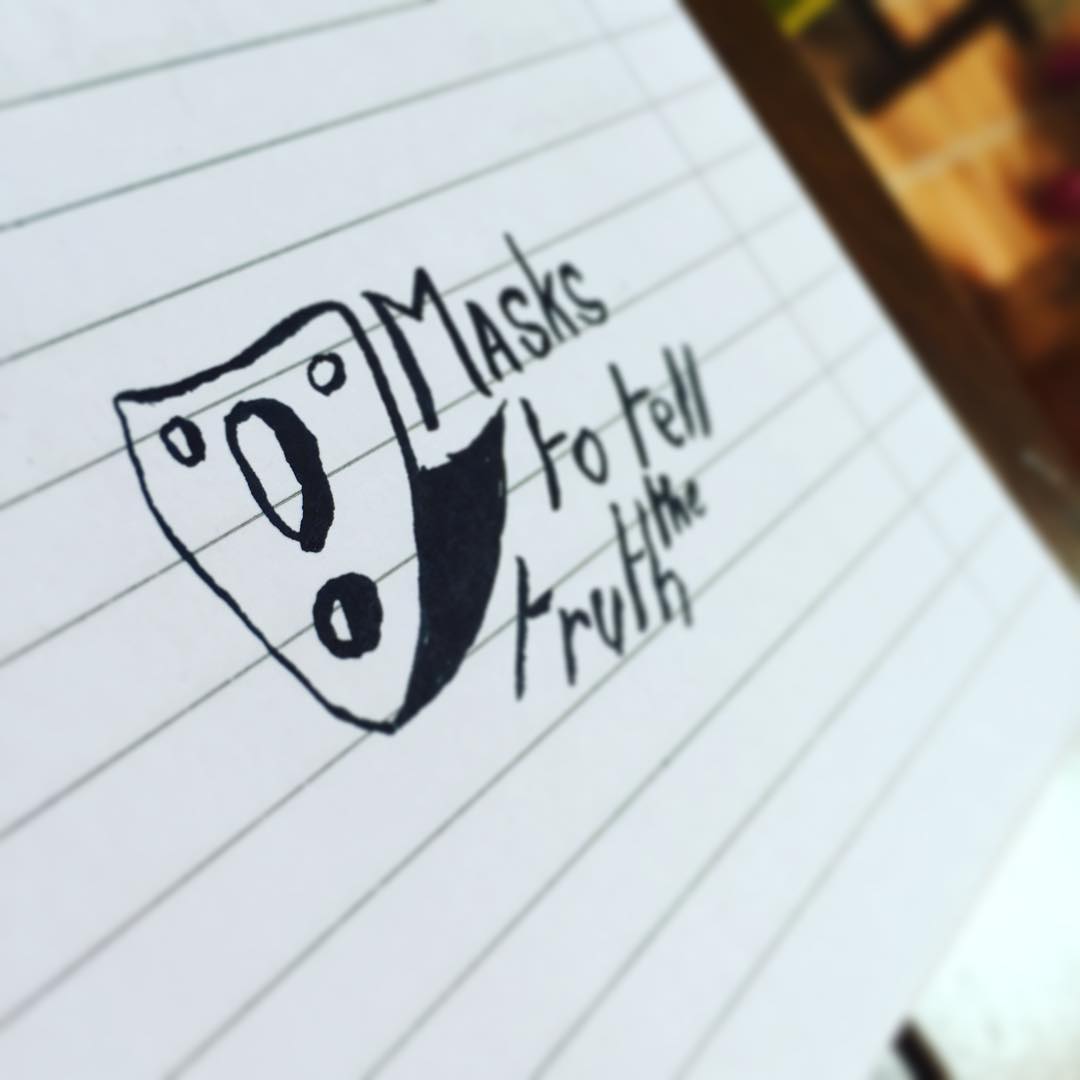 Masks
to tell
the
truth